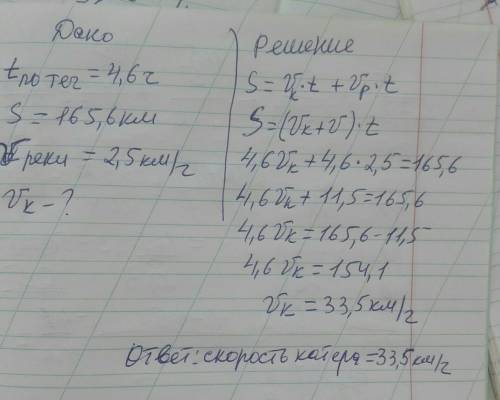 Дано
t по теч = 4,6 ч
S = 165,6 км
v реки = 2,5 км/ч
v к - ?
Решение
S = v к · t + v р · t
S = (v к + v) · t
4,6 v к + 4,6 · 2,5 = 165,6
4,6 v к + 11,5 = 165,6
4,6 v к = 165,6 - 11,5
4,6 v к = 154,1
v к = 33,5 км/ч
Ответ: скорость катера = 33,5 км/ч